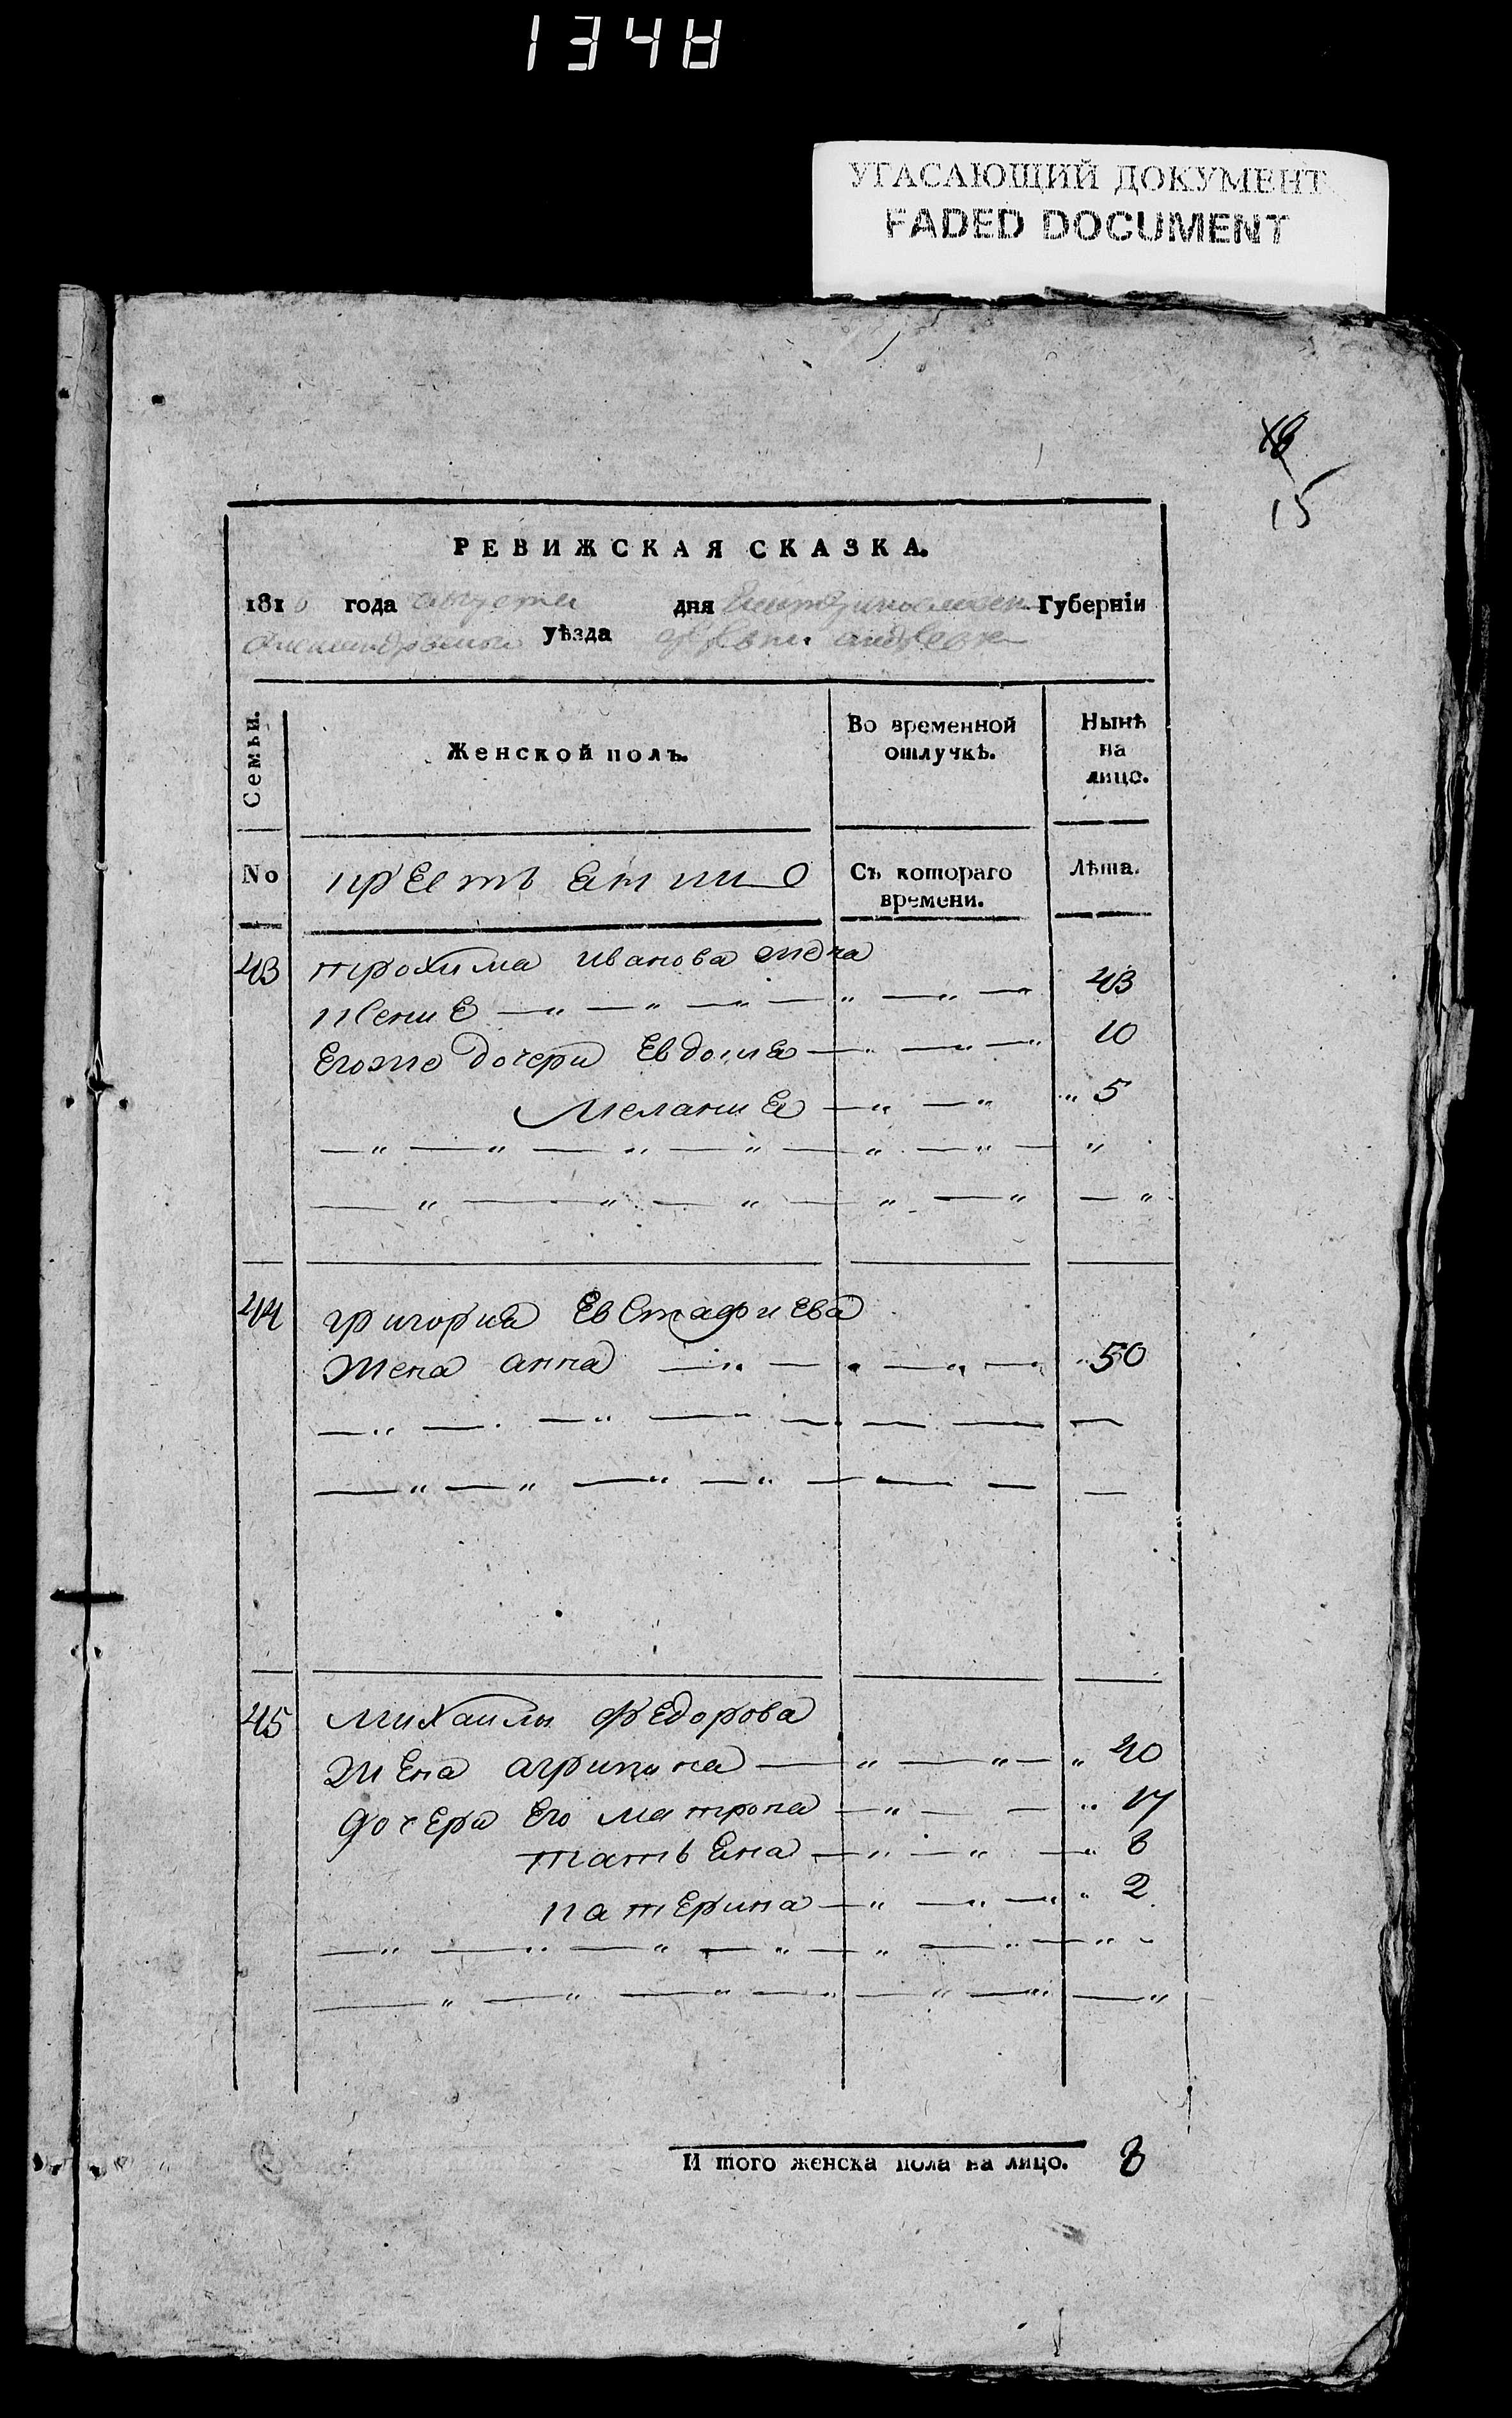 1348
УГАСАЮЩИЙ ДОКУМЕНТ
FADED DOCUMENT
15
РЕВИЖСКАЯ СКАЗКА.
181 года августа дня Губерніи
уѣзда
Семьи.
Женской полъ.
Во временной отлучкѣ.
Нынѣ на лицо.
No
крестьянъ
Съ котораго времени.
Лѣта.
43 трохима иванова жена
ксения 43
Егоже дочери Евдокия 10
Мелания 5
44 григория Евстафиева
жена анна 50
45 михаилы федорова
жена агрипина 40
дочери Его матрона 17
татьяна 8
катерина 2
И того женска пола на лицо. 8